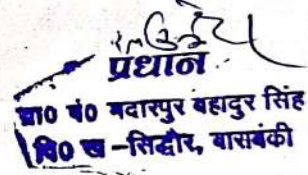 प्रधान
ग्रा0 पं0 मदारपुर बहादुर सिंह
वि0 ख -सिद्धौर, बाराबंकी